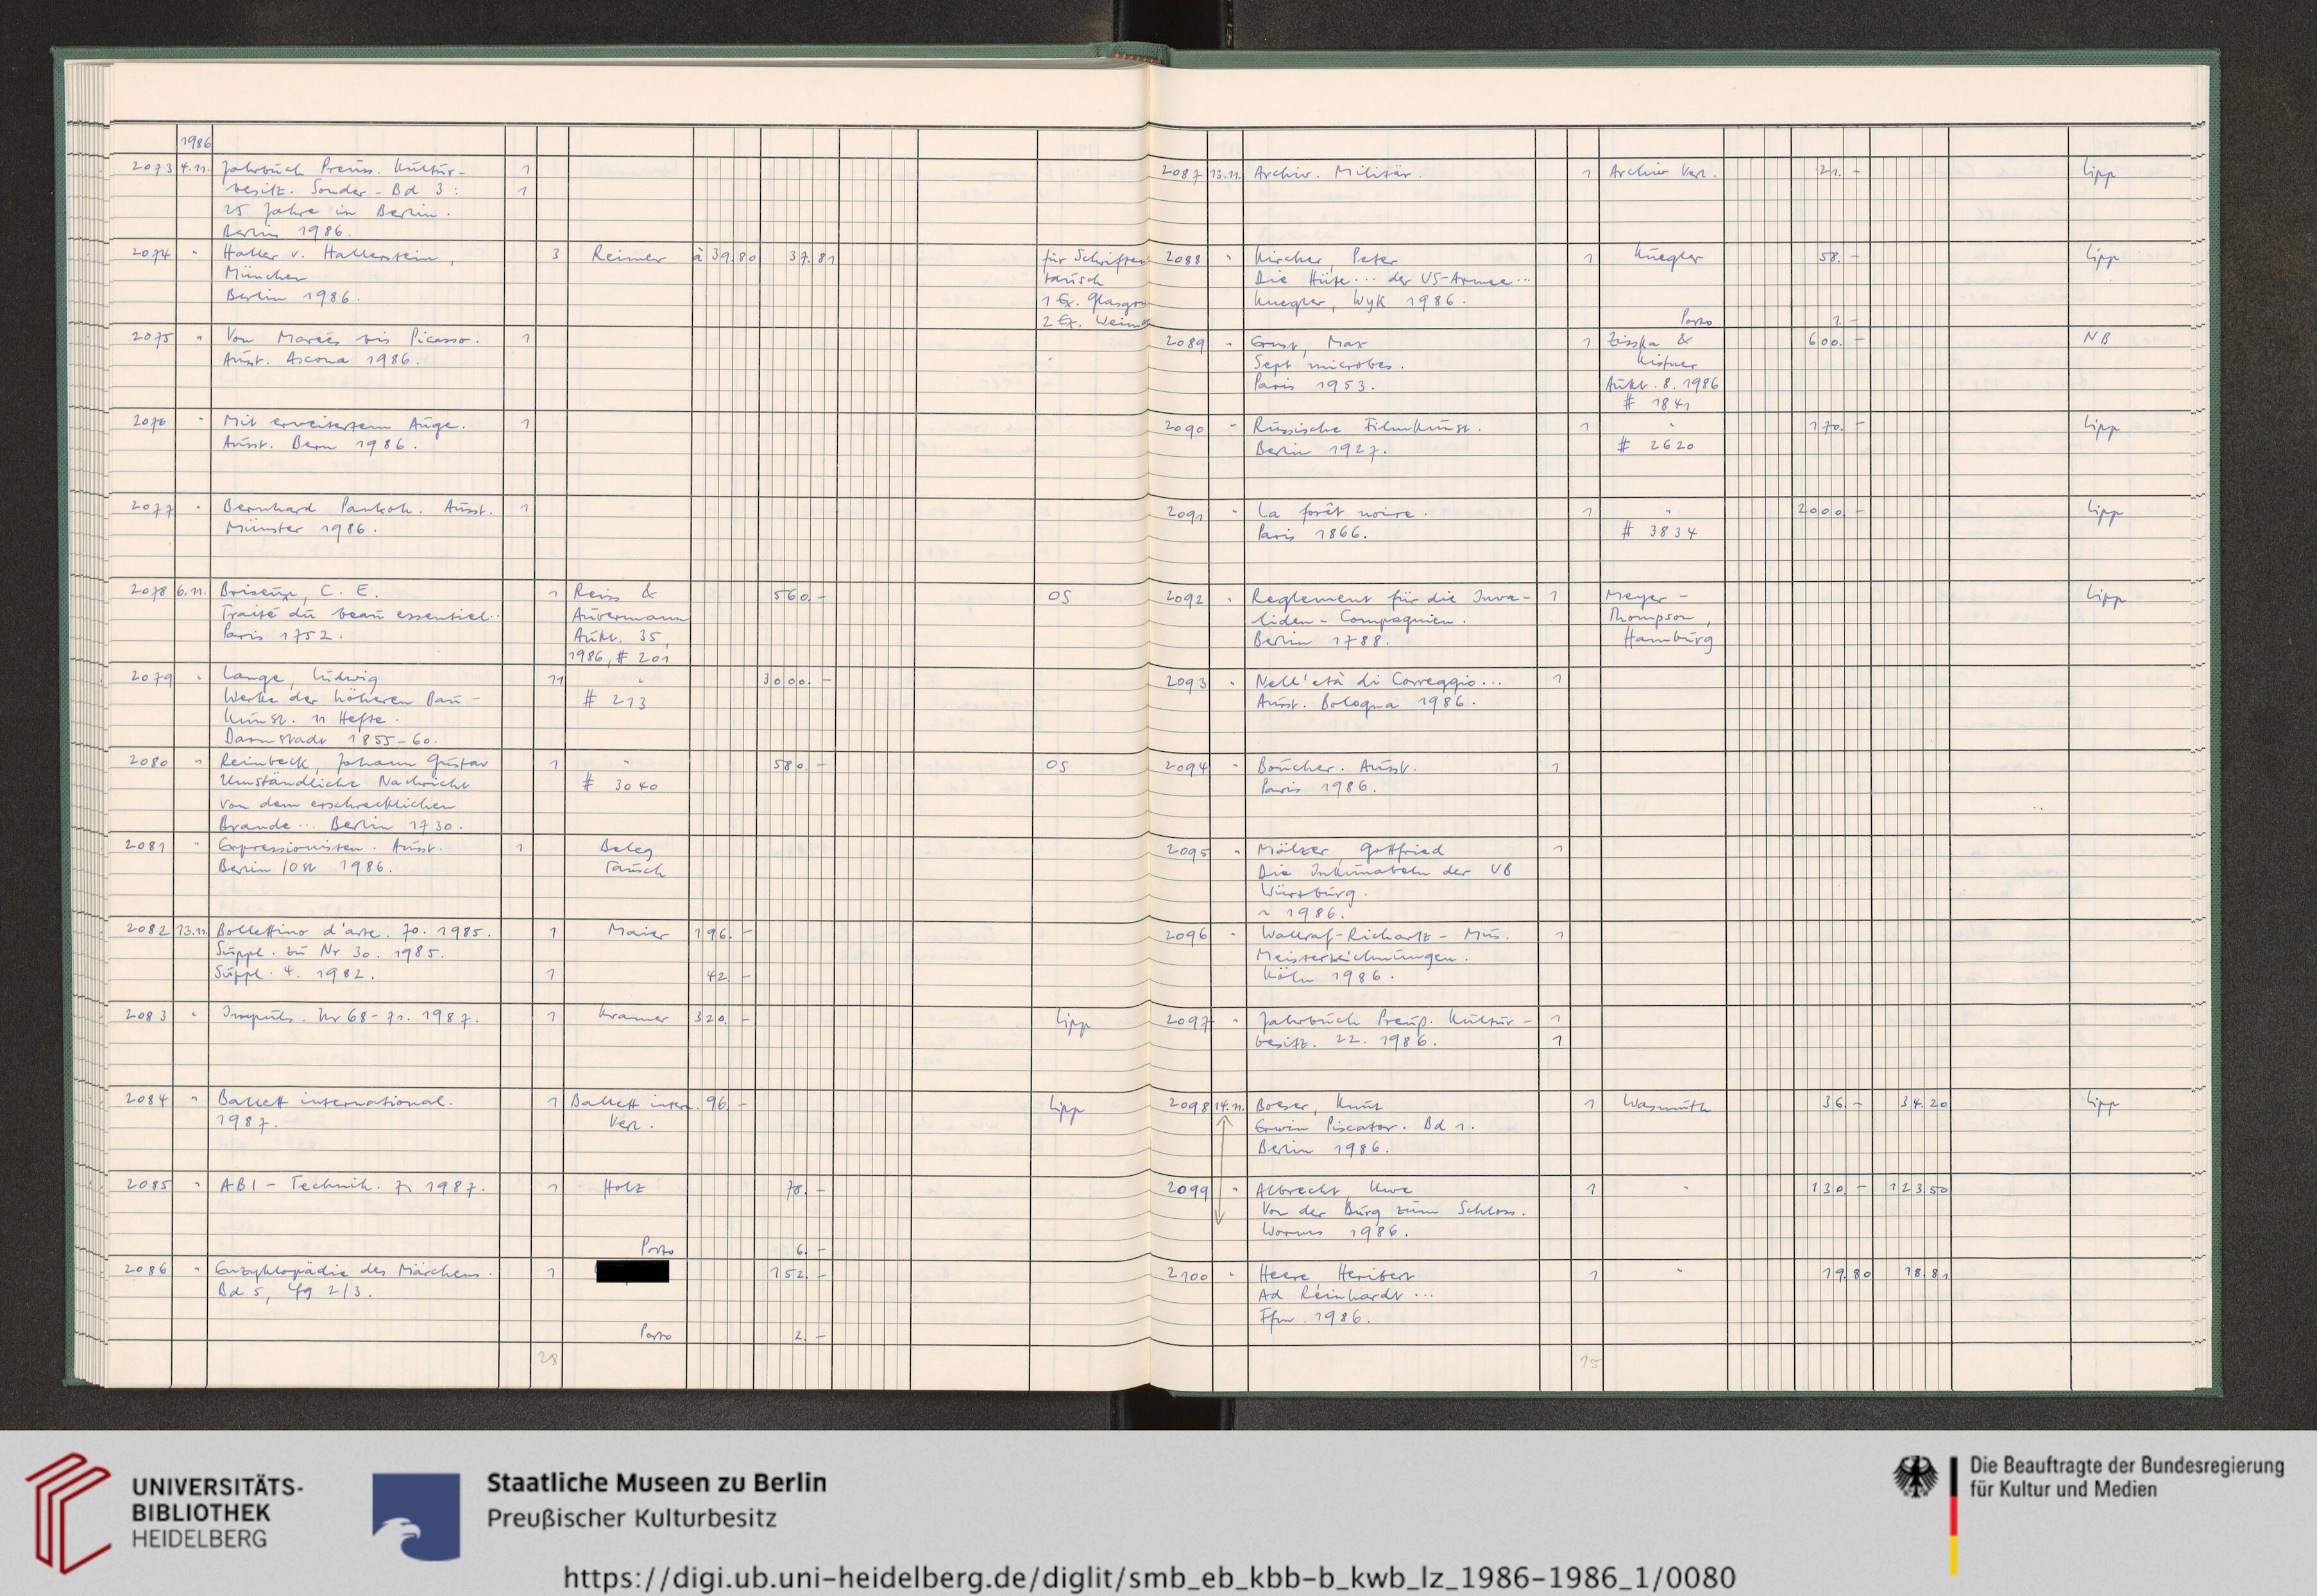 1986
2073 4.11. Jahrbuch Preuss. Kultur- 1
besitz. Sonder-Bd 3: 1
25 Jahre in Berlin.
Berlin 1986.
2074 " Haller v. Hallerstein, 3 Reimer à 39.80 37.81 für Schriften
München tausch
Berlin 1986. 1 Ex. Glasgow
2 Ex. Weimar
2075 " Von Marées bis Picasso. 1
Ausst. Ascona 1986.
2076 " Mit erweitertem Auge. 1
Ausst. Bern 1986.
2077 " Bernhard Pankok. Ausst. 1
Münster 1986.
2078 6.11. Briseux, C. E. 1 Reiss & 560.- OS
Traité du beau essentiel.. Auvermann
Paris 1752. Aukt. 35,
1986, # 201
2079 " Lange, Ludwig 11 " 3000.-
Werke der höheren Bau- # 213
kunst. 11 Hefte.
Darmstadt 1855-60.
2080 " Reinbeck, Johann Gustav 1 " 580.- OS
Umständliche Nachricht # 3040
von dem erschrecklichen
Brande... Berlin 1730.
2081 " Expressionisten. Ausst. 1 Beleg
Berlin/Ost 1986. Tausch
2082 13.11. Bollettino d'arte. 70. 1985. 1 Maier 196.-
Suppl. zu Nr 30. 1985.
Suppl. 4. 1982. 1 42.-
2083 " Impuls. Nr 68-71. 1987. 1 Kramer 320.- Lipp
2084 " Ballett international. 1 Ballett intern. 96.- Lipp
1987. Verl.
2085 " ABI-Technik. 7. 1987. 1 Holz 78.-
Porto 6.-
2086 " Enzyklopädie des Märchens. 1 152.-
Bd 5, Lfg 2/3.
Porto 2.-
28
2087 13.11. Archiv. Militär. 1 Archiv Verl. 21.- Lipp
2088 " Kircher, Peter 1 Kuegler 58.- Lipp
Die Hüte... der US-Armee...
Kuegler, Wyk 1986.
Porto 1.-
2089 " Ernst, Max 1 Zisska & 600.- NB
Sept microbes. Kistner
Paris 1953. Aukt. 8. 1986
# 1841
2090 " Russische Filmkunst. 1 " 170.- Lipp
Berlin 1927. # 2620
2091 " La forêt noire. 1 " 2000.- Lipp
Paris 1866. # 3834
2092 " Reglement für die Inva- 1 Meyer- Lipp
liden-Compagnien. Thompson,
Berlin 1788. Hamburg
2093 " Nell'età di Correggio... 1
Ausst. Bologna 1986.
2094 " Boucher. Ausst. 1
Paris 1986.
2095 " Mälzer, Gottfried 1
Die Inkunabeln der UB
Würzburg.
1986.
2096 " Wallraf-Richartz-Mus. 1
Meisterzeichnungen.
Köln 1986.
2097 " Jahrbuch Preuß. Kultur- 1
besitz. 22. 1986. 1
2098 14.11. Boeser, Knut 1 Wasmuth 36.- 34.20 Lipp
Erwin Piscator. Bd 1.
Berlin 1986.
2099 " Albrecht, Uwe 1 " 130.- 123.50
Von der Burg zum Schloss.
Worms 1986.
2100 " Heere, Heribert 1 " 19.80 18.81
Ad Reinhardt...
Ffm. 1986.
15
UNIVERSITÄTS-
BIBLIOTHEK
HEIDELBERG
Staatliche Museen zu Berlin
Preußischer Kulturbesitz
Die Beauftragte der Bundesregierung
für Kultur und Medien
https://digi.ub.uni-heidelberg.de/diglit/smb_eb_kbb-b_kwb_lz_1986-1986_1/0080